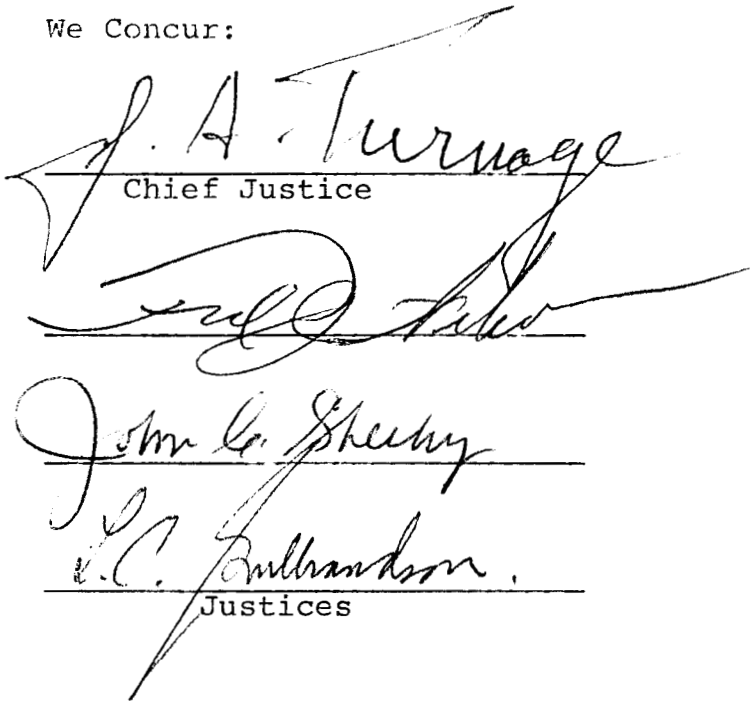 We Concur:
J. A. Turnage
Chief Justice
John C. Sheehy
L. C. Gulbrandson.
Justices